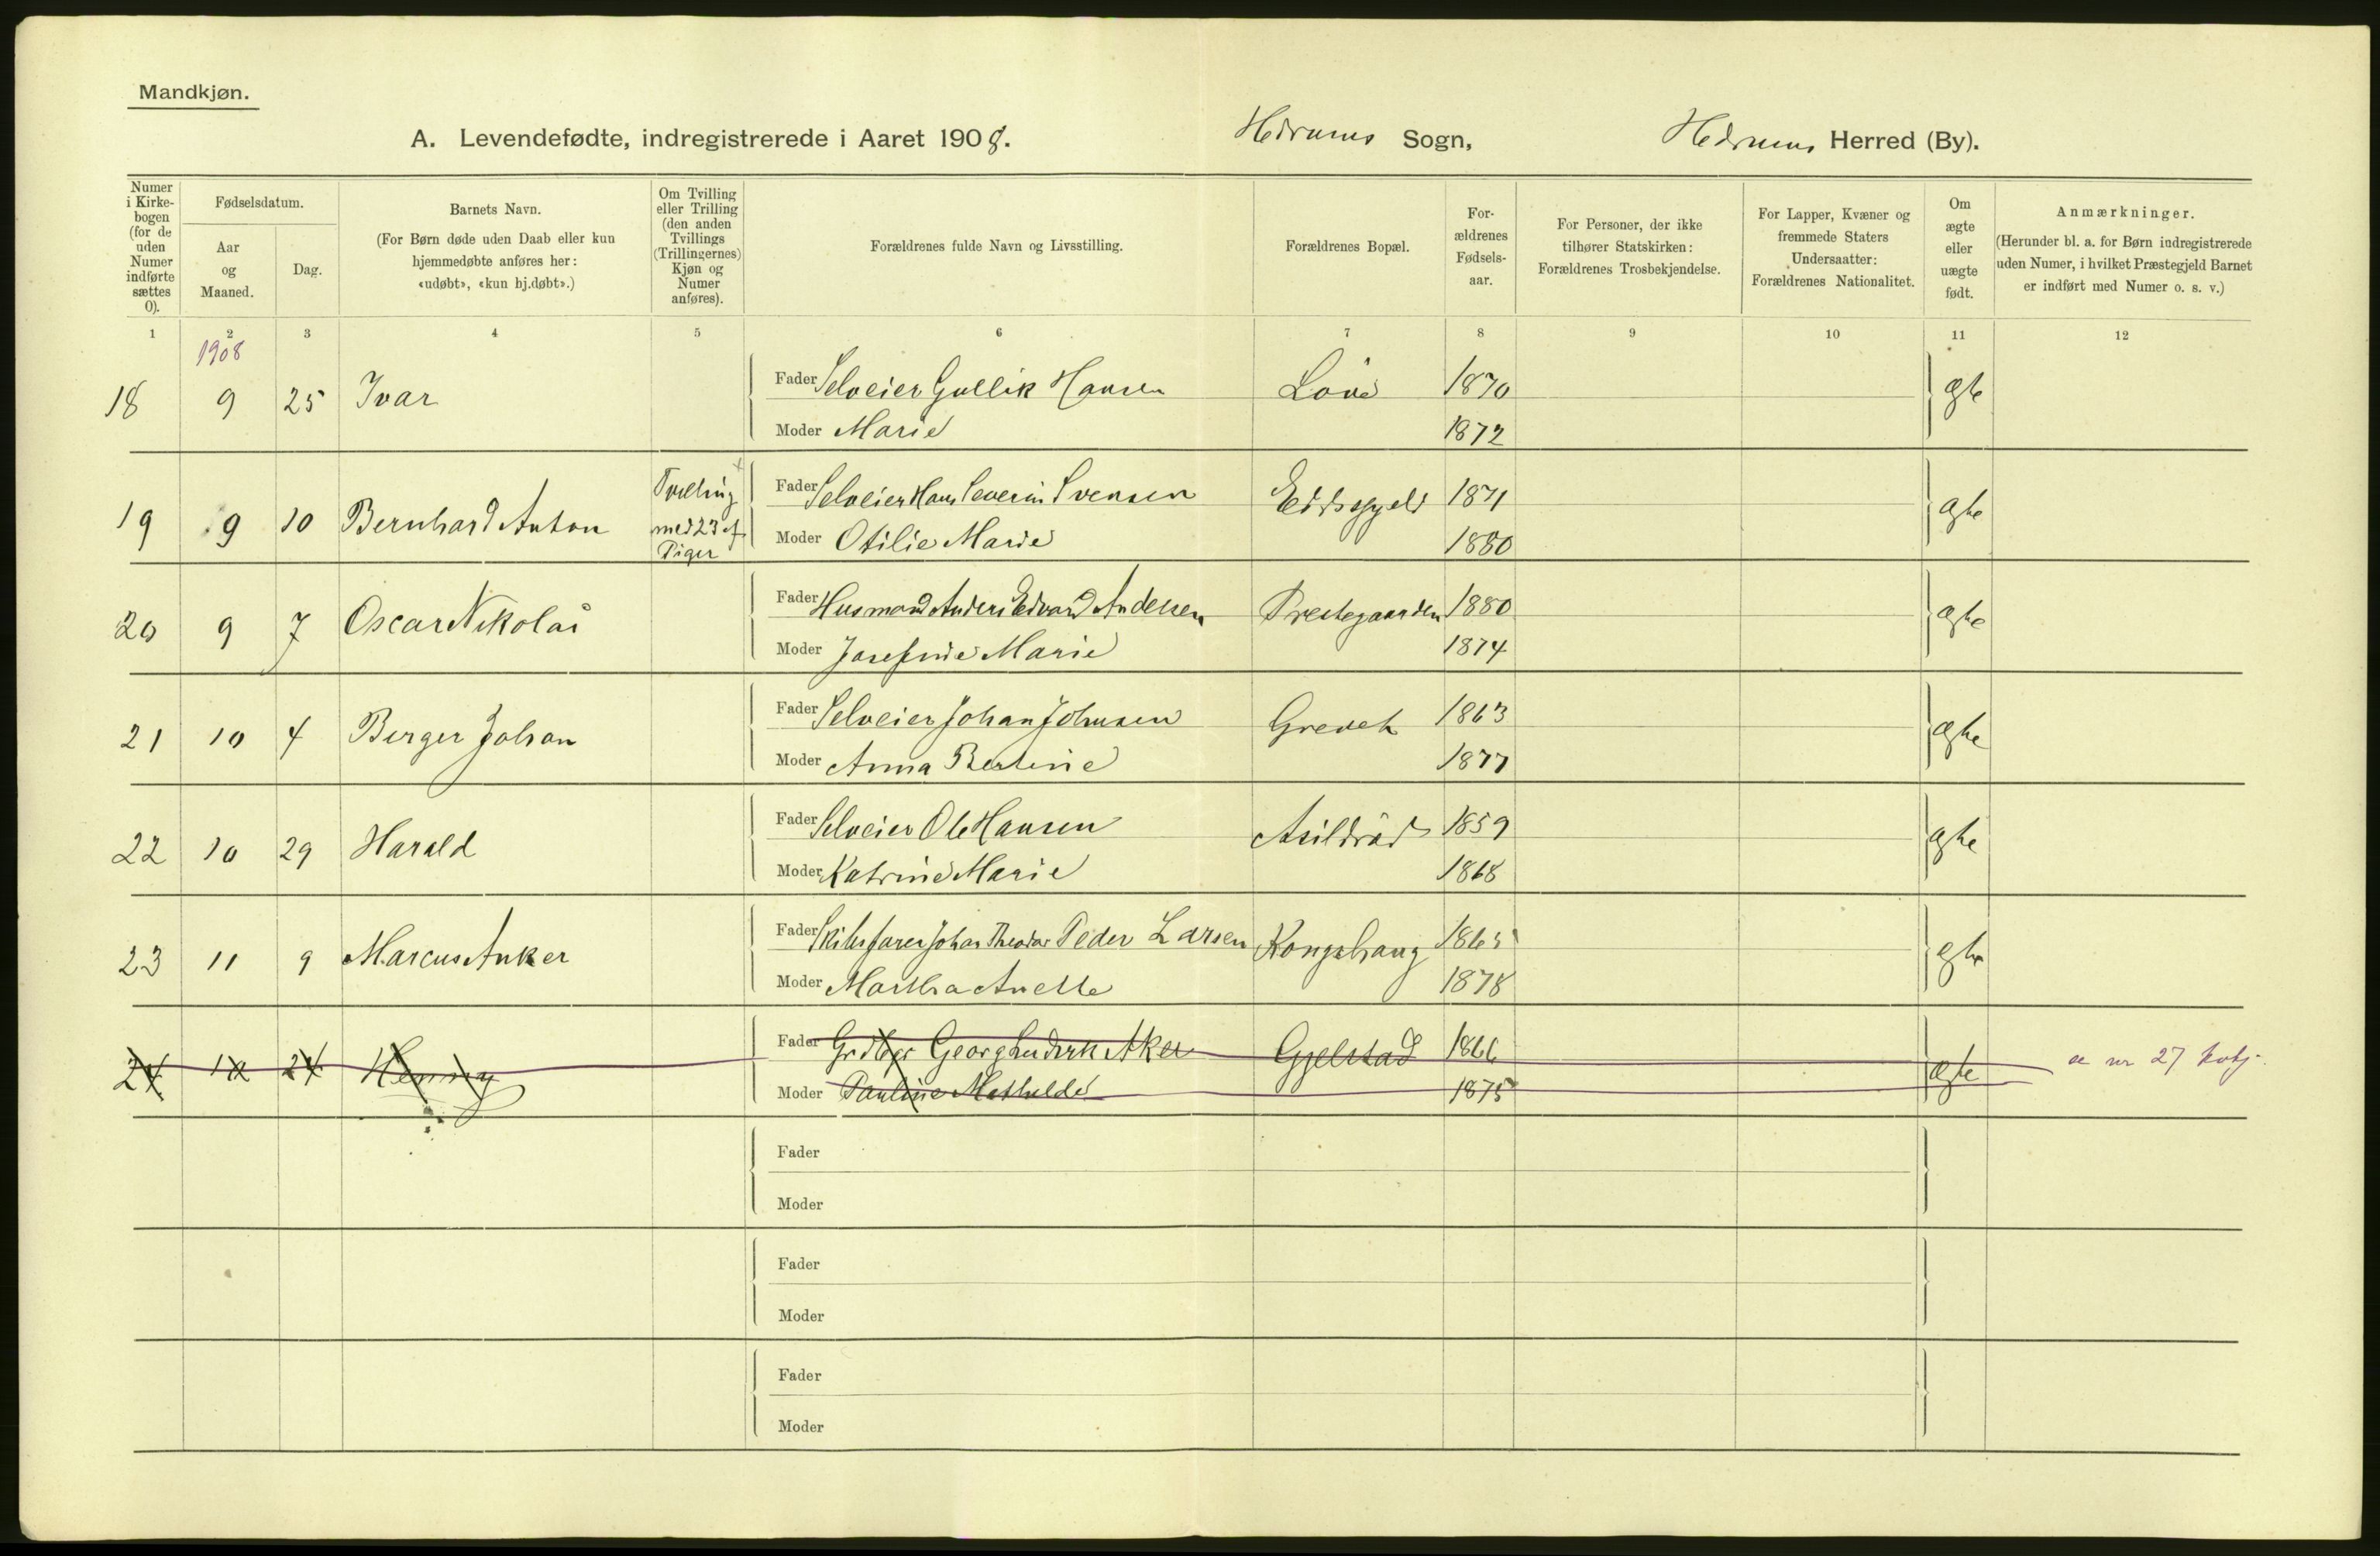 Mandkjøn.
A. Levendefødte, indregistrerede i Aaret 1908. Hedrums Sogn, Hedrums Herred (By).
Numer i Kirkebogen (for de uden Numer indførte sættes 0).
Fødselsdatum.
Aar og Maaned.
Dag.
Barnets Navn.
(For Børn døde uden Daab eller kun hjemmedøbte anføres her: «udøbt», «kun hj.døbt».)
Om Tvilling eller Trilling (den anden Tvillings (Trillingernes) Kjøn og Numer anføres).
Forældrenes fulde Navn og Livsstilling.
Forældrenes Bopæl.
Forældrenes Fødselsaar.
For Personer, der ikke tilhører Statskirken: Forældrenes Trosbekjendelse.
For Lapper, Kvæner og fremmede Staters Undersaatter: Forældrenes Nationalitet.
Om ægte eller uægte født.
Anmærkninger.
(Herunder bl. a. for Børn indregistrerede uden Numer, i hvilket Præstegjeld Barnet er indført med Numer o. s. v.)
1 2 3 4 5 6 7 8 9 10 11 12
1908
18 9 25 Ivar Fader Selveier Gullik Hansen 1870 ægte
Moder Marie 1872
19 9 10 Bernhard Anton Tvilling med 23 af Piger Fader Selveier Hans Severin Svensen 1871 ægte
Moder Otilie Marie 1880
20 9 7 Oscar Nikolai Fader Husmand Anders Edvard Andersen Prestegaarden 1880 ægte
Moder Josefine Marie 1874
21 10 4 Berger Johan Fader Selveier Johan Johnsen 1863 ægte
Moder Anna Bertine 1877
22 10 29 Harald Fader Selveier Ole Hansen Askildrød 1859 ægte
Moder Katrine Marie 1868
23 11 9 Marcus Anker Fader Johan Theodor Peder Larsen Kongshaug 1865 ægte
Moder Martha Anette 1878
24 10 24 Henny Fader Grdbgr Georg Aker Gjelstad 1866 ægte nr 27
Moder Pauline Mathilde 1875
Fader
Moder
Fader
Moder
Fader
Moder